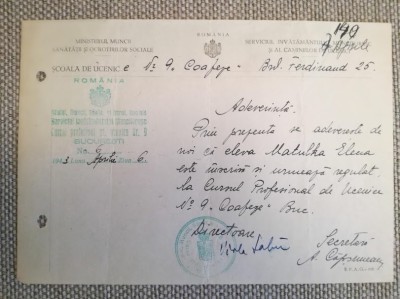 140
ROMÂNIA
MINISTERUL MUNCII
SĂNĂTĂȚII ȘI OCROTIRILOR SOCIALE
SERVICIUL INVĂȚĂMÂNTULUI
ȘI AL CĂMINELOR
ȘCOALA DE UCENICE No 9. "Coafeze" Bvd. Ferdinand 25.
ROMÂNIA
Adeverință.
Prin prezenta se adeverește de
noi că eleva Matulka Elena
este înscrisă și urmează regulat
la Cursul Profesional de Ucenice
No 9 "Coafeze" Buc.
BUCUREȘTI
No.
Aprilie 6
Directoare
Secretară
A.